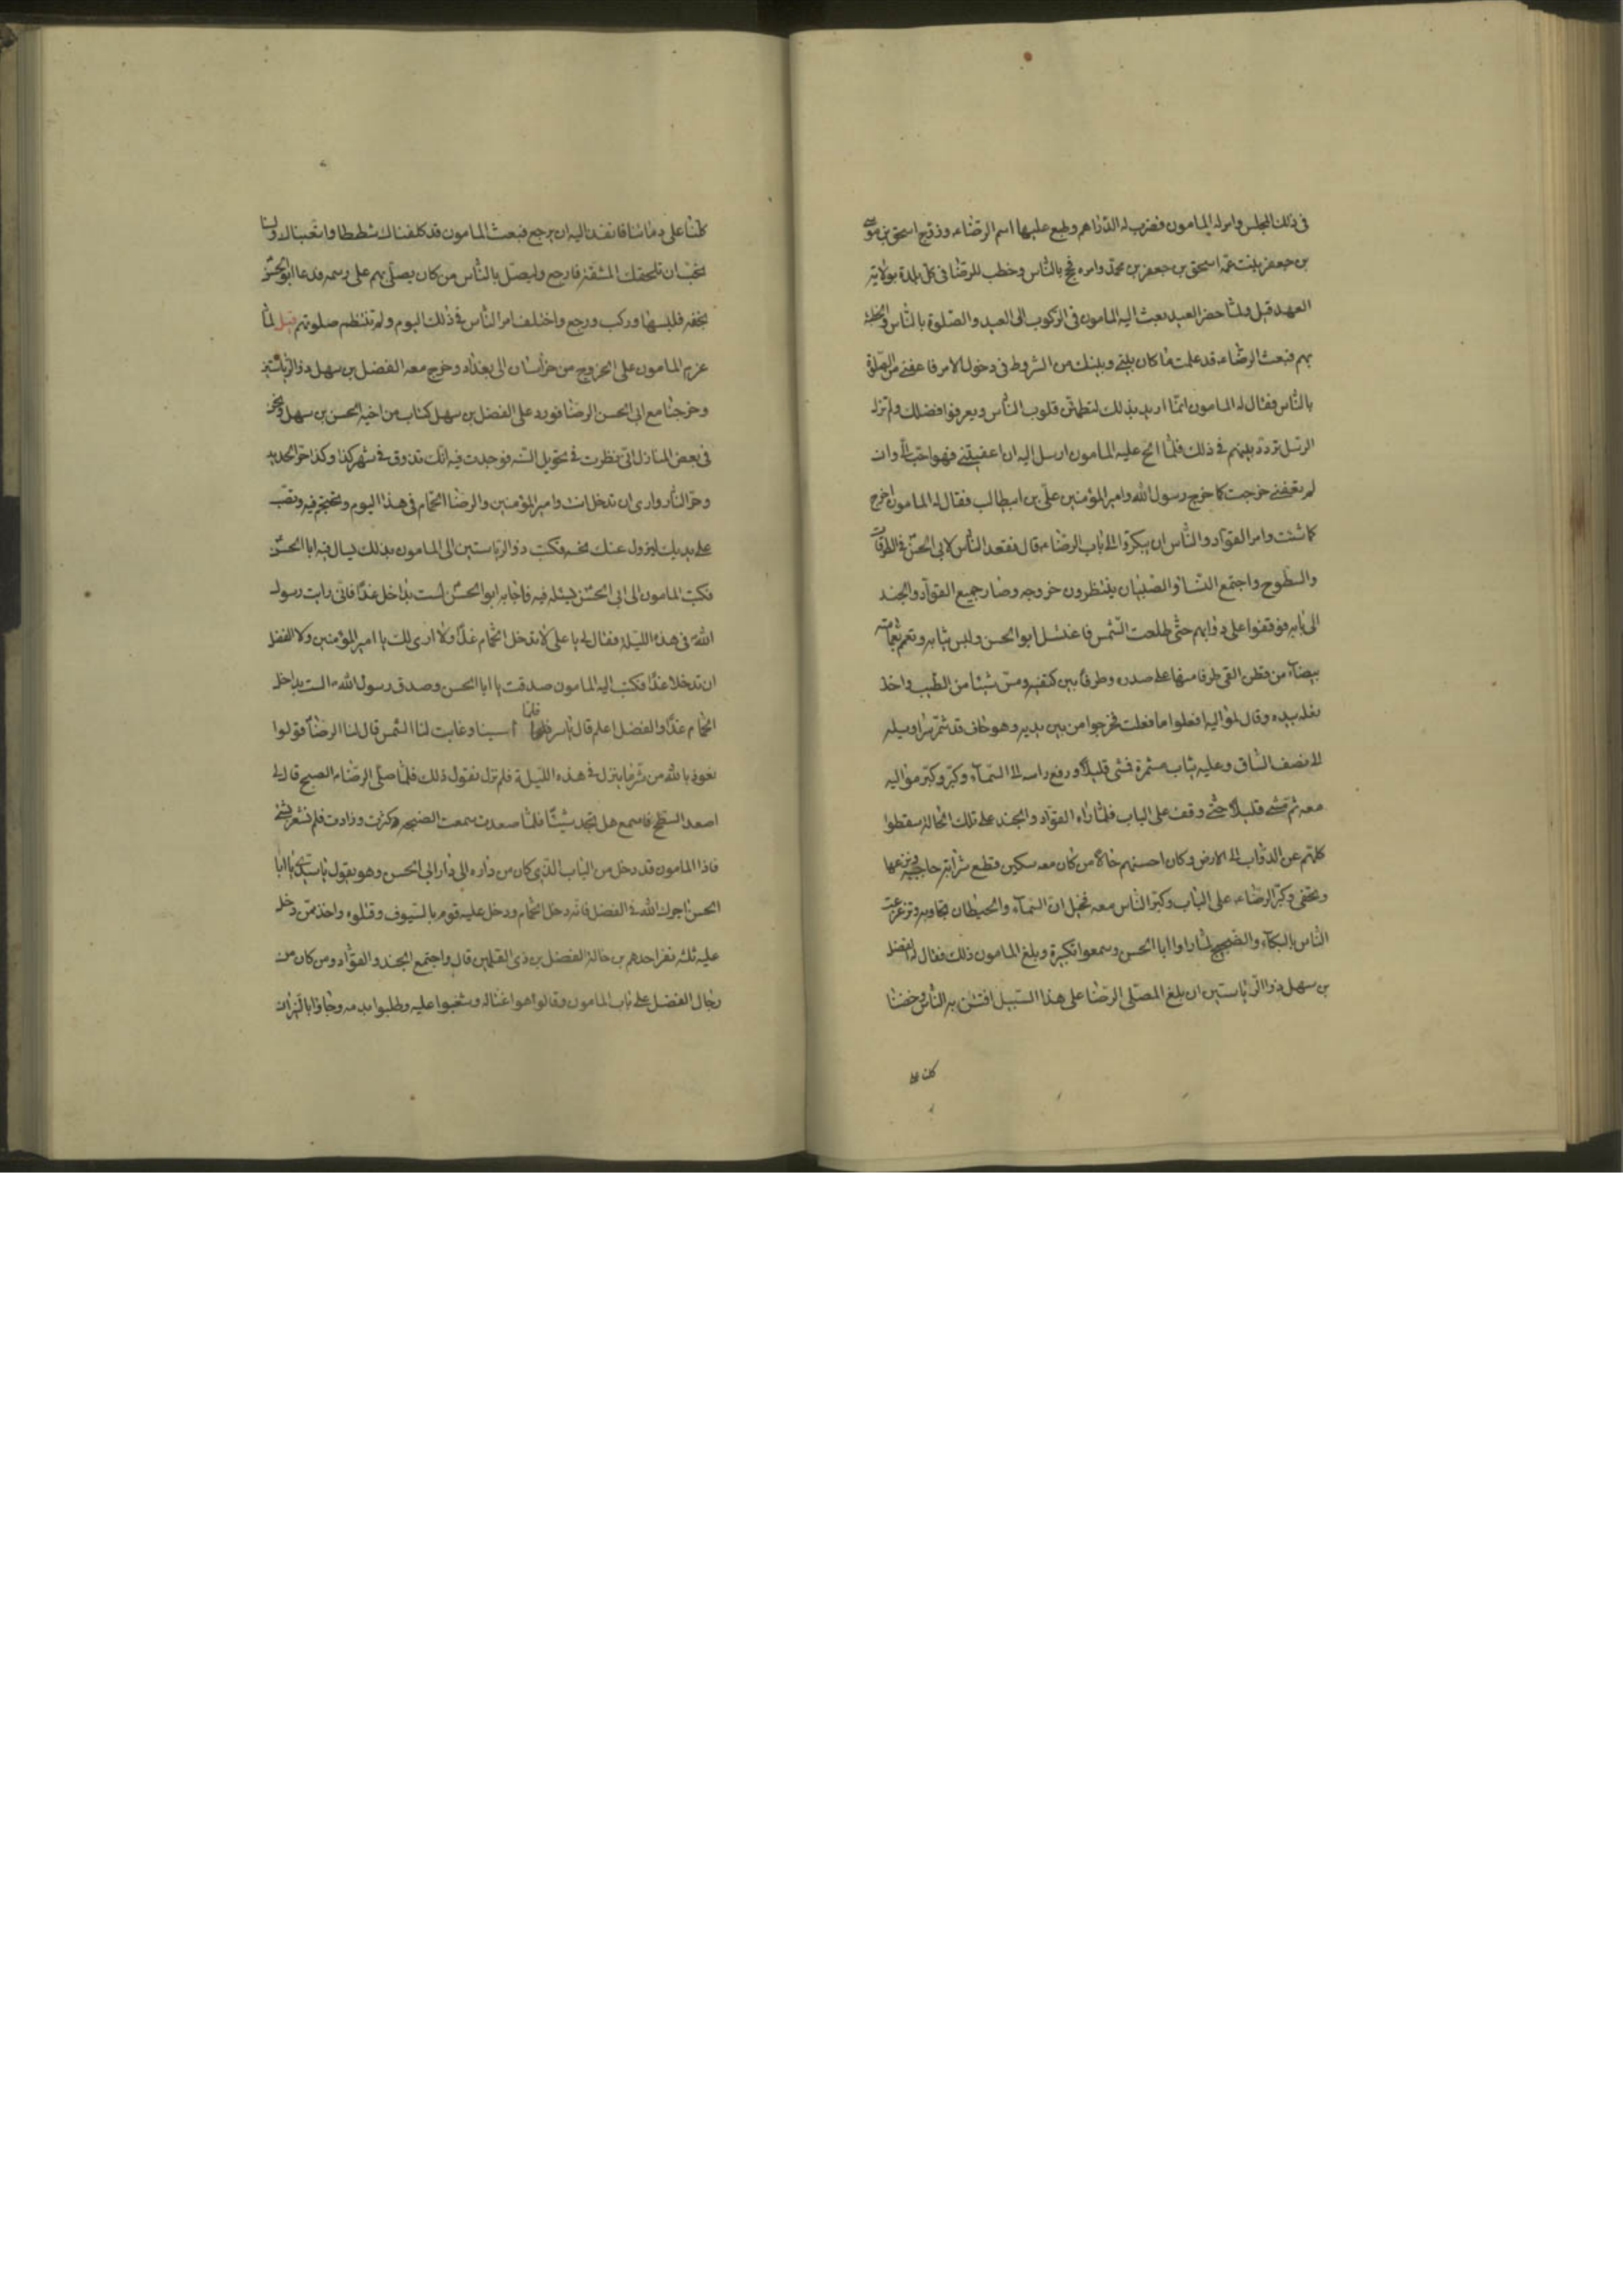 في ذلك المجلس وامر له المامون فضرب له الدراهم وطبع عليها اسم الرضا ع وزوج اسحق بن موسى
بن جعفر بنت عمه اسحق بن جعفر بن محمد وامره فحج بالناس وخطب للرضا في كل بلدة بولاية
العهد قيل ولما حضر العيد بعث اليه المامون في الركوب الى العيد والصلوة بالناس والخطبة
بهم فبعث الرضا ع قد علمت ما كان بيني وبينك من الشروط في دخول الامر فاعفني من الصلوة
بالناس فقال له المامون انما اريد بذلك لتطمئن قلوب الناس ويعرفوا فضلك ولم تزل
الرسل تردد بينهم في ذلك فلما الح عليه المامون ارسل اليه ان اعفيتني فهو احب الي وان
لم تعفني خرجت كما خرج رسول الله وامير المؤمنين علي بن ابيطالب فقال له المامون اخرج
كما شئت وامر القواد والناس ان يبكروا الى باب الرضا ع قال فقعد الناس لابي الحسن في الطرقات
والسطوح واجتمع النسا والصبيان ينتظرون خروجه وصار جميع القواد والجند
الى بابه فوقفوا على دوابهم حتى طلعت الشمس فاغتسل ابو الحسن ولبس ثيابه وتعمم بعمامته
بيضاء من قطن القى طرفا منها على صدره وطرفا بين كتفيه ومس شيئا من الطيب واخذ
بغله بيده وقال لمواليه افعلوا ما فعلت فخرجوا من بين يديه وهو حاف قد شمر سراويله
الى نصف الساق وعليه ثياب مشمرة فمشى قليلا ورفع راسه الى السماء وكبر وكبر مواليه
معه ثم مشى قليلا حتى وقف على الباب فلما راه القواد والجند على تلك الحالة سقطوا
كلهم عن الدواب الى الارض وكان احسنهم حالا من كان معه سكين فقطع شرابة حاجبيه ونزعها
وتحفى وكبر الرضا ع على الباب وكبر الناس معه فخيل ان السماء والحيطان تجاوبه وتزعزعت
الناس بالبكاء والضجيج لما راوا ابا الحسن وسمعوا تكبيره وبلغ المامون ذلك فقال له الفضل
بن سهل ذو الرياستين ان بلغ المصلى الرضا على هذا السبيل افتتن به الناس وخفنا
كلنا على دمائنا فانفذ اليه ان يرجع فبعث المامون قد كلفناك شططا واتعبناك ولسنا
نحب ان تلحقك المشقة فارجع وليصل بالناس من كان يصلي بهم على رسمه فدعا ابو الحسن
بخفه فلبسها وركب ورجع واختلف امر الناس في ذلك اليوم ولم تنتظم صلوتهم قيل لما
عزم المامون على الخروج من خراسان الى بغداد وخرج معه الفضل بن سهل ذو الرياستين
وخرجنا مع ابي الحسن الرضا فورد على الفضل بن سهل كتاب من اخيه الحسن بن سهل ونحن
في بعض المنازل اني نظرت في تحويل السنه فوجدت فيه انك تذوق في شهر كذا وكذا حر الحديد
وحر النار وارى ان تدخل انت وامير المؤمنين والرضا الحمام في هذا اليوم وتحتجم فيه وتصب
على يديك ليزول عنك نحسه فكتب ذو الرياستين الى المامون بذلك ليسال فيه ابا الحسن
فكتب المامون الى ابي الحسن يسئله فيه فاجابه ابو الحسن لست بداخل غدا فاني رايت رسول
الله في هذه الليلة فقال لي يا علي لا تدخل الحمام غدا ولا ارى لك يا امير المؤمنين ولا للفضل
ان تدخلا غدا فكتب اليه المامون صدقت يا ابا الحسن وصدق رسول الله ص لست بداخل
الحمام غدا والفضل اعلم قال ياسر فلما امسينا وغابت لنا الشمس قال لنا الرضا قولوا
نعوذ بالله من شر ما ينزل في هذه الليلة فلم نزل نقول ذلك فلما صلى الرضا ع الصبح قال لي
اصعد السطح فاسمع هل تجد شيئا فلما صعدت سمعت الضجيه وكثرت وزادت فلم نشعر بشئ
فاذا المامون قد دخل من الباب الذي كان من داره الى دار ابي الحسن وهو يقول يا سيدي يا ابا
الحسن اجرك الله في الفضل فانه دخل الحمام ودخل عليه قوم بالسيوف وقتلوه واخذ ممن دخل
عليه ثلثه نفر احدهم بن خالة الفضل بن ذي القلمين قال واجتمع الجند والقواد ومن كان من
رجال الفضل على باب المامون وقالوا هو اغتاله وشغبوا عليه وطلبوا بدمه وجاؤا بالنيران